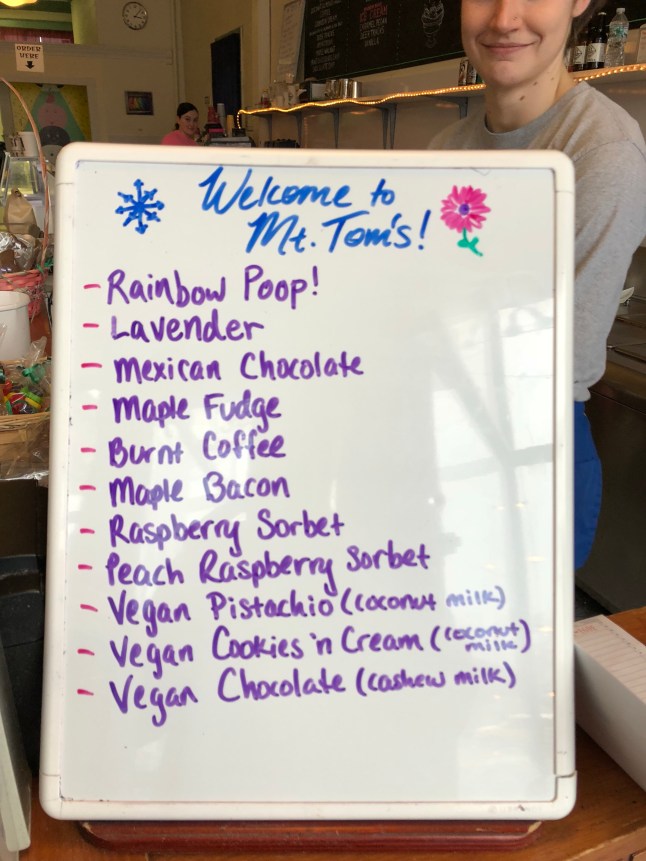 ORDER
HERE
ICE CREAM
Welcome to
Mt. Tom's!
- Rainbow Poop!
- Lavender
- Mexican Chocolate
- Maple Fudge
- Burnt Coffee
- Maple Bacon
- Raspberry Sorbet
- Peach Raspberry Sorbet
- Vegan Pistachio (coconut milk)
- Vegan Cookies 'n Cream (coconut milk)
- Vegan Chocolate (cashew milk)